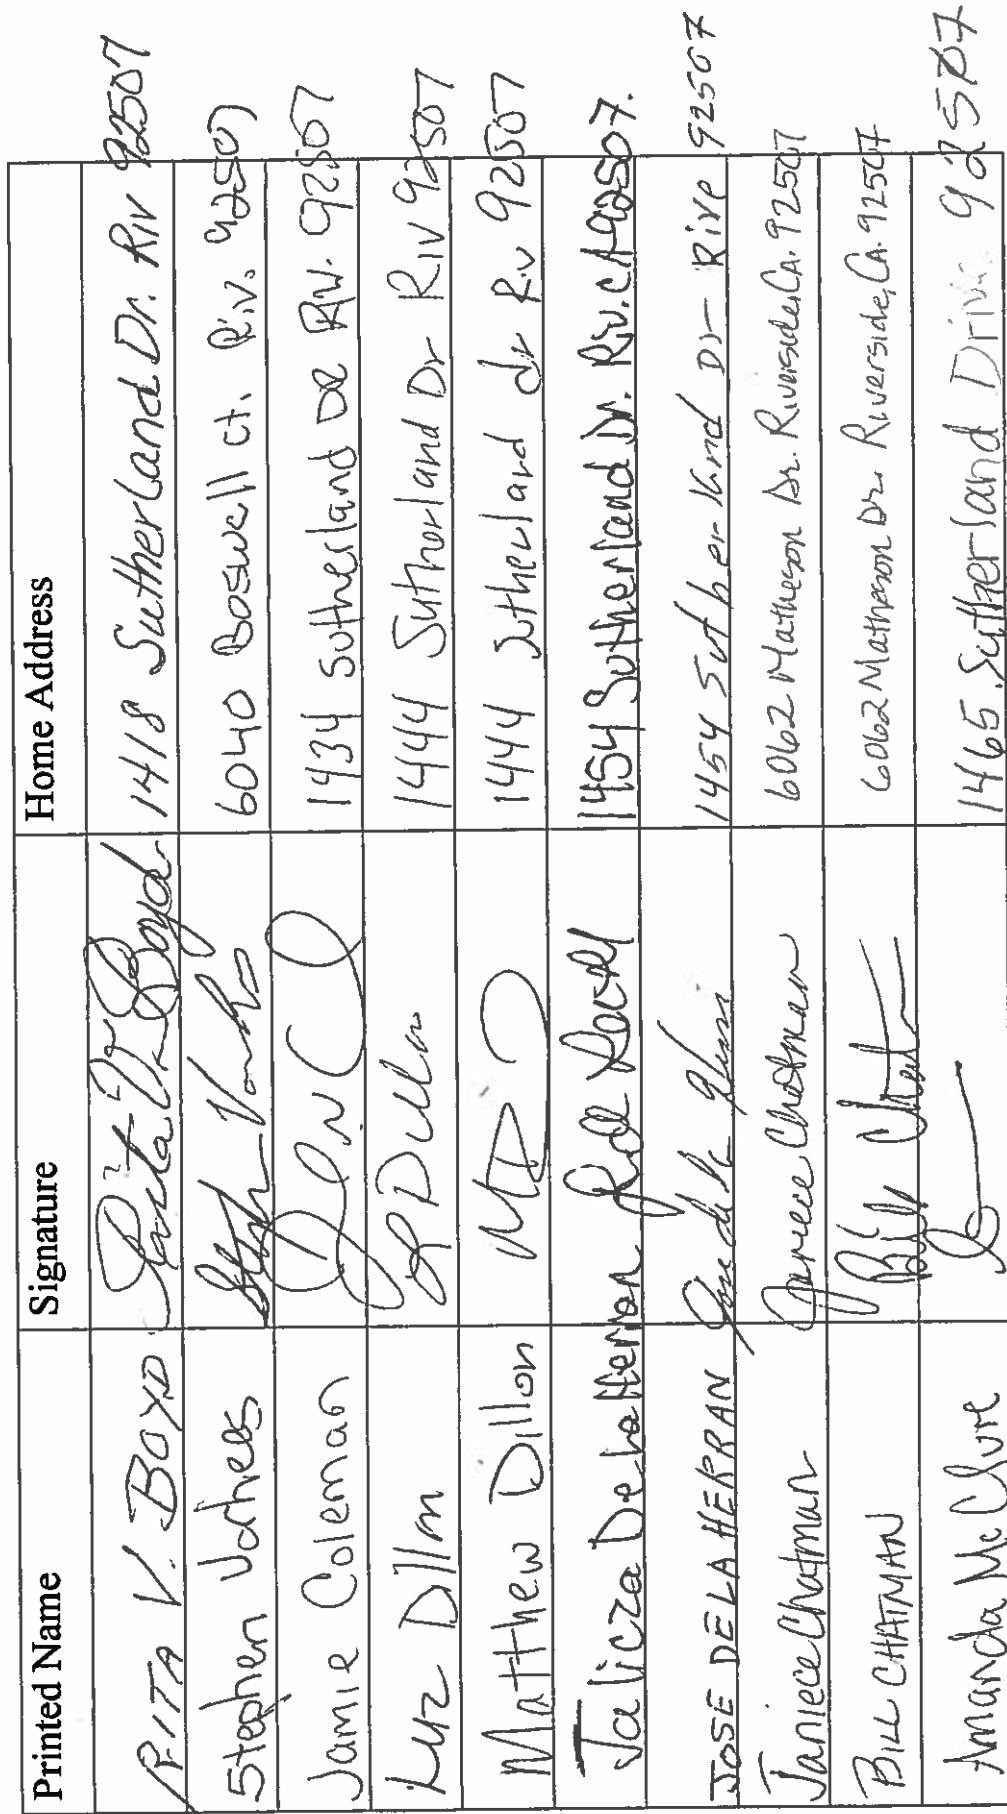 Printed Name Signature Home Address
RITA V. BOYD Rita V. Boyd 1418 Sutherland Dr. Riv 92507
Stephen Vorhees 6040 Boswell ct. Riv. 92507
Jamie Coleman 1434 Sutherland DR RIV. 92507
Luz Dillon 1444 Sutherland Dr Riv 92507
Matthew Dillon MD 1444 Sutherland dr Riv 92507
De La Herran 1454 Sutherland Dr. Riv. CA 92507.
JOSE DE LA HERRAN 1454 Sutherland Dr- Rive 92507
Janiece Chatman Janiece Chatman 6062 Matheson Dr. Riverside, CA. 92507
BILL CHATMAN Bill 6062 Matheson Dr. Riverside, CA. 92507
Amanda McClure 1465 Sutherland Drive 92507